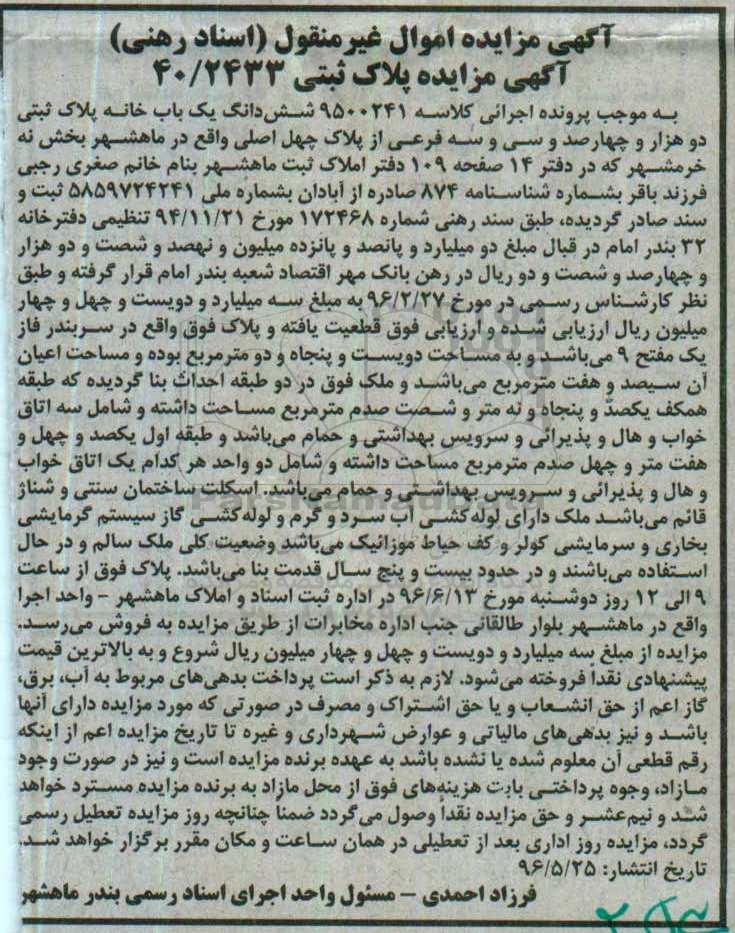 آگهی مزایده اموال غیرمنقول (اسناد رهنی)
آگهی مزایده پلاک ثبتی ۴۰/۲۴۳۳
به موجب پرونده اجرائی کلاسه ۹۵۰۰۲۴۱ شش‌دانگ یک باب خانه پلاک ثبتی
دو هزار و چهارصد و سی و سه فرعی از پلاک چهل اصلی واقع در ماهشهر بخش نه
خرمشهر که در دفتر ۱۴ صفحه ۱۰۹ دفتر املاک ثبت ماهشهر بنام خانم صغری رجبی
فرزند باقر بشماره شناسنامه ۸۷۴ صادره از آبادان بشماره ملی ۵۸۵۹۷۲۴۲۴۱ ثبت و
سند صادر گردیده، طبق سند رهنی شماره ۱۷۲۴۶۸ مورخ ۹۴/۱۱/۲۱ تنظیمی دفترخانه
۳۲ بندر امام در قبال مبلغ دو میلیارد و پانصد و پانزده میلیون و نهصد و شصت و دو هزار
و چهارصد و شصت و دو ریال در رهن بانک مهر اقتصاد شعبه بندر امام قرار گرفته و طبق
نظر کارشناس رسمی در مورخ ۹۶/۲/۲۷ به مبلغ سه میلیارد و دویست و چهل و چهار
میلیون ریال ارزیابی شده و ارزیابی فوق قطعیت یافته و پلاک فوق واقع در سربندر فاز
یک مفتح ۹ می‌باشد و به مساحت دویست و پنجاه و دو مترمربع بوده و مساحت اعیان
آن سیصد و هفت مترمربع می‌باشد و ملک فوق در دو طبقه احداث بنا گردیده که طبقه
همکف یکصد و پنجاه و نه متر و شصت صدم مترمربع مساحت داشته و شامل سه اتاق
خواب و هال و پذیرائی و سرویس بهداشتی و حمام می‌باشد و طبقه اول یکصد و چهل و
هفت متر و چهل صدم مترمربع مساحت داشته و شامل دو واحد هر کدام یک اتاق خواب
و هال و پذیرائی و سرویس بهداشتی و حمام می‌باشد. اسکلت ساختمان سنتی و شناژ
قائم می‌باشد ملک دارای لوله‌کشی آب سرد و گرم و لوله‌کشی گاز سیستم گرمایشی
بخاری و سرمایشی کولر و کف حیاط موزائیک می‌باشد وضعیت کلی ملک سالم و در حال
استفاده می‌باشند و در حدود بیست و پنج سال قدمت بنا می‌باشد. پلاک فوق از ساعت
۹ الی ۱۲ روز دوشنبه مورخ ۹۶/۶/۱۳ در اداره ثبت اسناد و املاک ماهشهر - واحد اجرا
واقع در ماهشهر بلوار طالقانی جنب اداره مخابرات از طریق مزایده به فروش می‌رسد.
مزایده از مبلغ سه میلیارد و دویست و چهل و چهار میلیون ریال شروع و به بالاترین قیمت
پیشنهادی نقداً فروخته می‌شود. لازم به ذکر است پرداخت بدهی‌های مربوط به آب، برق،
گاز اعم از حق انشعاب و یا حق اشتراک و مصرف در صورتی که مورد مزایده دارای آنها
باشد و نیز بدهی‌های مالیاتی و عوارض شهرداری و غیره تا تاریخ مزایده اعم از اینکه
رقم قطعی آن معلوم شده یا نشده باشد به عهده برنده مزایده است و نیز در صورت وجود
مازاد، وجوه پرداختی بابت هزینه‌های فوق از محل مازاد به برنده مزایده مسترد خواهد
شد و نیم‌عشر و حق مزایده نقداً وصول می‌گردد ضمناً چنانچه روز مزایده تعطیل رسمی
گردد، مزایده روز اداری بعد از تعطیلی در همان ساعت و مکان مقرر برگزار خواهد شد.
تاریخ انتشار: ۹۶/۵/۲۵
فرزاد احمدی - مسئول واحد اجرای اسناد رسمی بندر ماهشهر